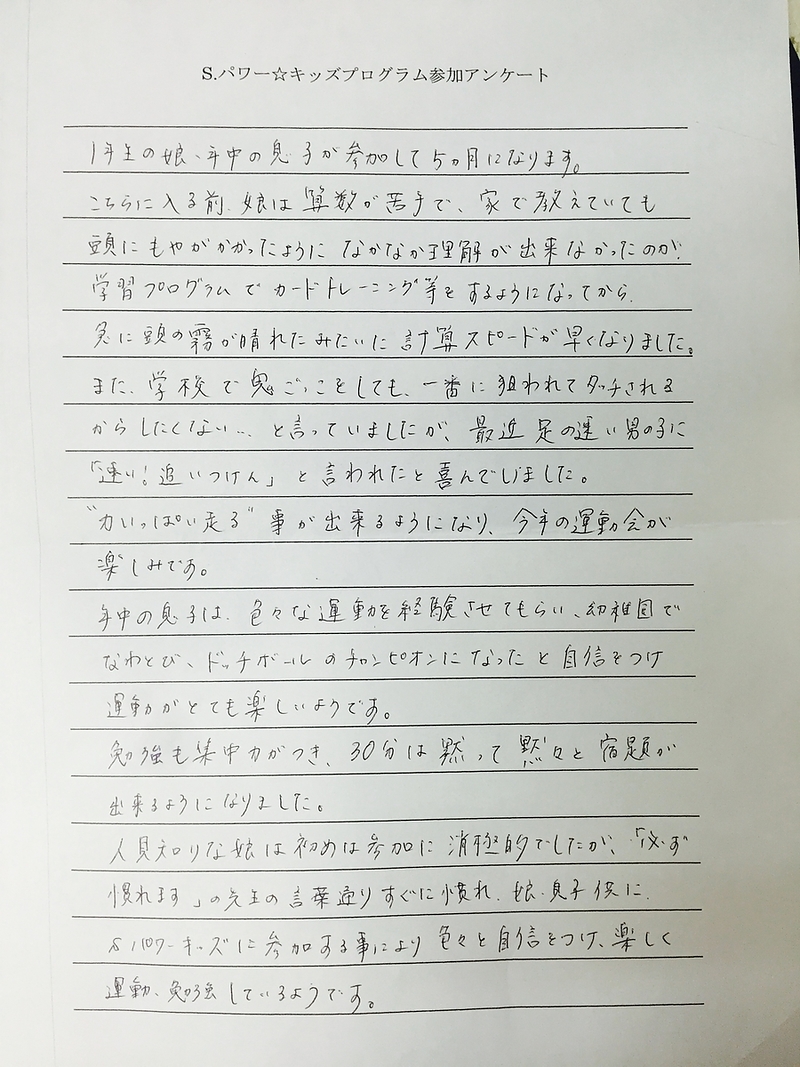 S.パワー☆キッズプログラム参加アンケート
1年生の娘、年中の息子が参加して5ヵ月になります。
こちらに入る前、娘は算数が苦手で、家で教えていても
頭にもやがかかったように なかなか理解が出来なかったのが、
学習プログラムでカードトレーニング等をするようになってから、
急に頭の霧が晴れたみたいに計算スピードが早くなりました。
また、学校で鬼ごっこをしても、一番に狙われてタッチされる
からしたくない… と言っていましたが、最近 足の速い男の子に
「速い!追いつけん」と言われたと喜んでいました。
"力いっぱい走る"事が出来るようになり、今年の運動会が
楽しみです。
年中の息子は、色々な運動を経験させてもらい、幼稚園で
なわとび、ドッチボールのチャンピオンになったと自信をつけ
運動がとても楽しいようです。
勉強も集中力がつき、30分は黙って黙々と宿題が
出来るようになりました。
人見知りな娘は初めは参加に消極的でしたが、「必ず
慣れます」の先生の言葉通りすぐに慣れ、娘・息子供に、
Sパワーキッズに参加する事により色々と自信をつけ、楽しく
運動、勉強しているようです。